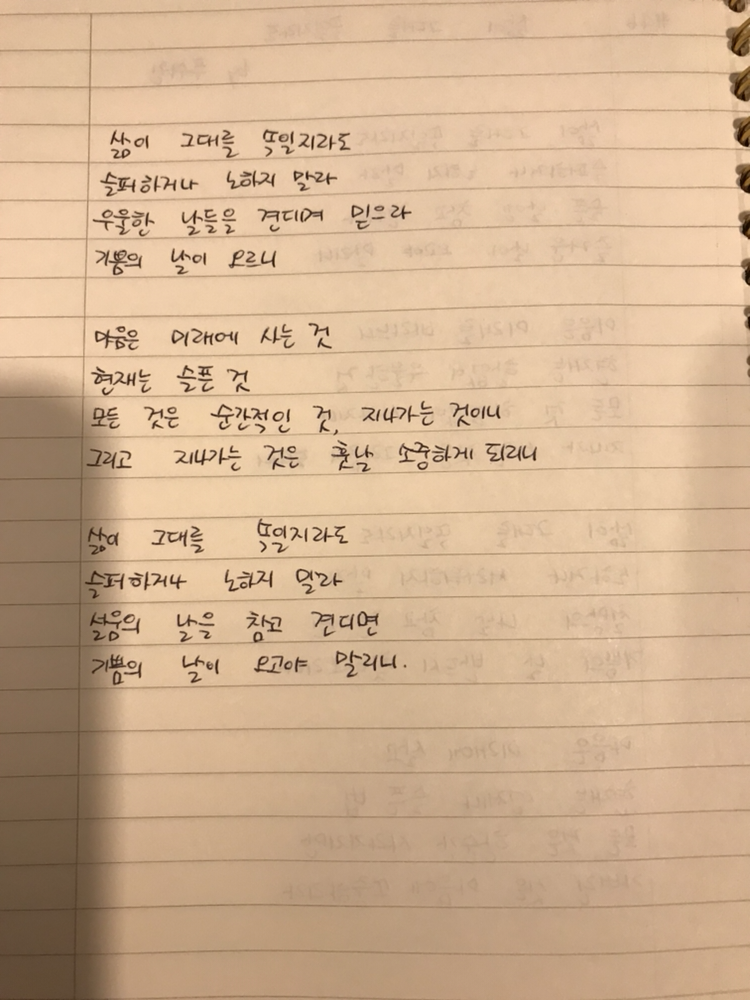 삶이 그대를 속일지라도
슬퍼하거나 노하지 말라
우울한 날들을 견디며 믿으라
기쁨의 날이 오르니
마음은 미래에 사는 것
현재는 슬픈 것
모든 것은 순간적인 것, 지나가는 것이니
그리고 지나가는 것은 훗날 소중하게 되리니
삶이 그대를 속일지라도
슬퍼하거나 노하지 말라
설움의 날을 참고 견디면
기쁨의 날이 오고야 말리니.